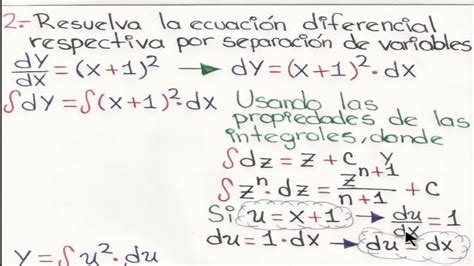 2.- Resuelva la ecuación diferencial
respectiva por separación de variables
dy/dx = (x+1)² → dy = (x+1)² · dx
∫dy = ∫(x+1)² · dx
Usando las
propiedades de las
integrales, donde
∫dz = z + c y
∫zⁿ · dz = zⁿ⁺¹/n+1 + c
Si u = x+1 → du/dx = 1
du = 1 · dx → du = dx
y = ∫u² · du